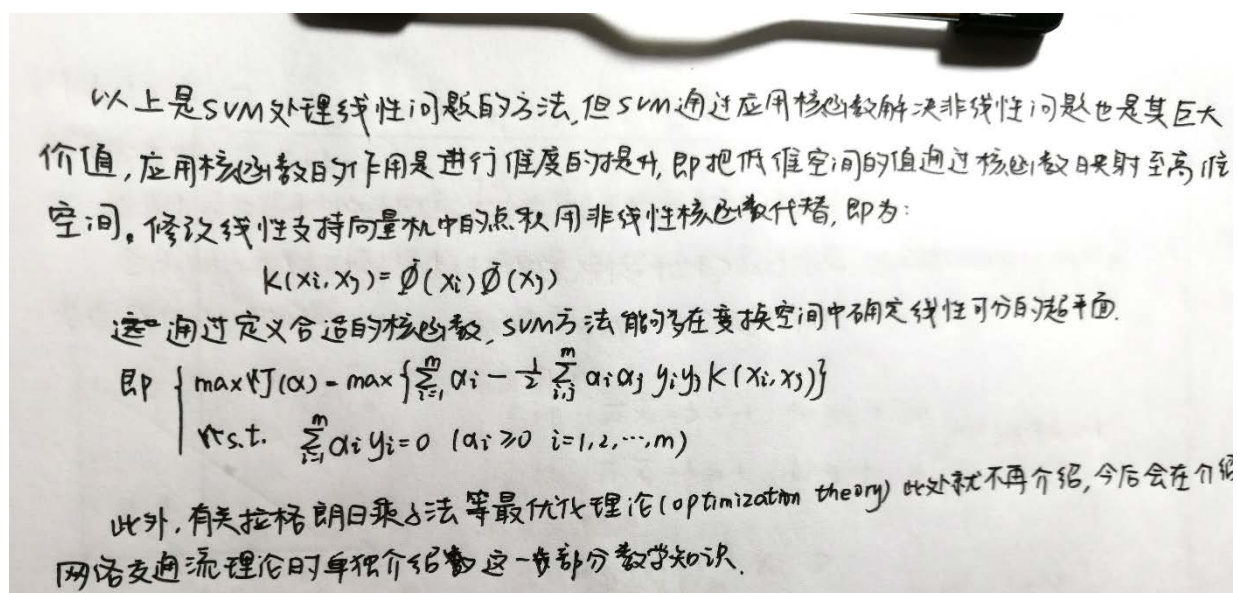 以上是SVM处理线性问题的方法,但SVM通过应用核函数解决非线性问题也是其巨大
价值,应用核函数的作用是进行维度的提升,即把低维空间的值通过核函数映射至高维
空间。修改线性支持向量机中的点积用非线性核函数代替,即为:
K(xi,xj)=Φ(xi)Φ(xj)
通过定义合适的核函数,SVM方法能够在变换空间中确定线性可分的超平面.
即 { max J(α) = max{∑_{i=1}^{m} αi - 1/2 ∑_{i,j}^{m} αiαj yiyj K(xi,xj)}
s.t. ∑_{i=1}^{m} αi yi=0 (αi≥0 i=1,2,…,m)
此外,有关拉格朗日乘子法等最优化理论(optimization theory)此处就不再介绍,今后会在介绍
网络交通流理论时单独介绍这一部分数学知识.